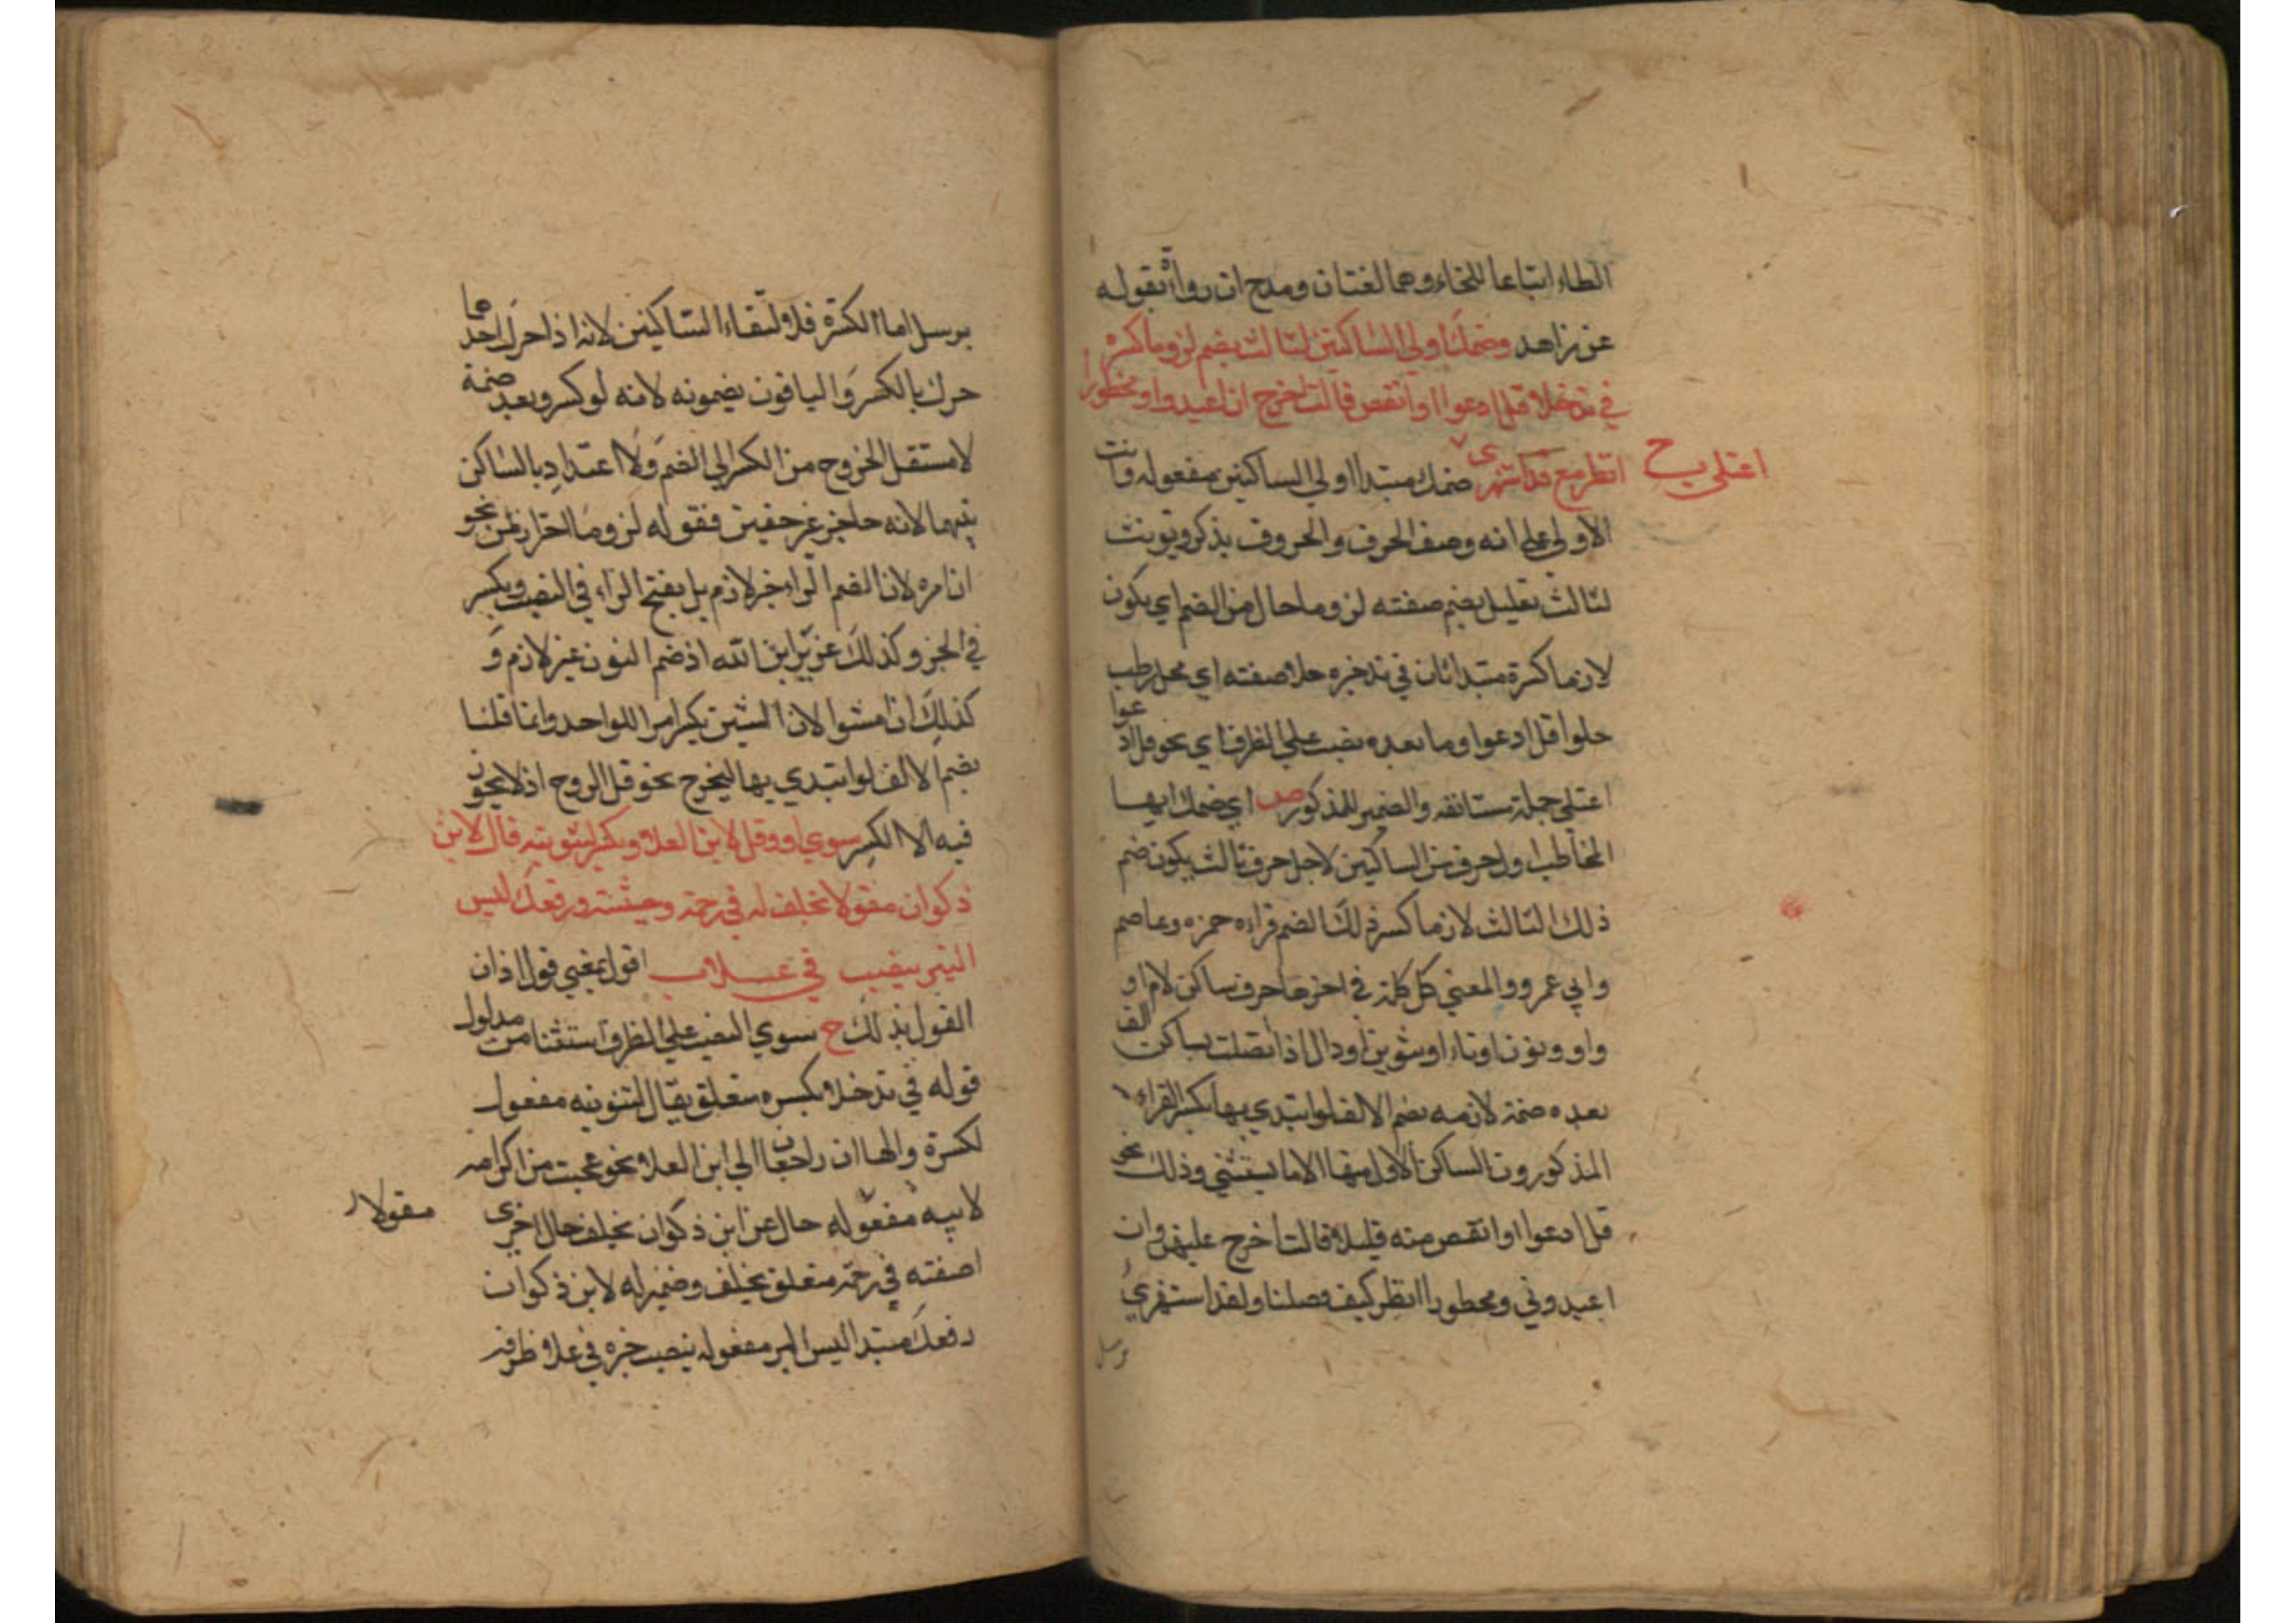 الطاء اتباعا للخاء وهما لغتان ومدح ان رواته بقوله
عن زاهد وضمك اولي الساكنين لثالث يضم لزوما كسره
في ند حلا قل ادعوا او انقص قالت اخرج ان اعبدوا ومحظورا
انظر مع قد استهزي اعتلي ح ضمك مبتدا اولي الساكنين مفعوله وانث
الاولي علي انه وصف الحرف والحروف يذكر ويونث
لثالث تعليل يضم صفته لزوما حال من الضم اي يكون
لازما كسرة مبتدا ثان في ند خبره حلا صفته اي محل رطب
حلوا قل ادعوا وما بعده نصب علي الظرف اي نحو قل ادعوا
اعتلي جملة مستانفه والضمير للمذكور ص اي ضمك ايها
المخاطب اول حرف من الساكنين لاجل حرف ثالث يكون ضم
ذلك الثالث لازما كسر ذلك الضم قراءه حمزه وعاصم
وابي عمرو والمعني كل كلمة في اخرها حرف ساكن لام او
واو ونون او تاء او تنوين او دال اذا اتصلت بساكن الف
بعده ضمة لازمه بضم الالف لو ابتدي بها بكسر القراء
المذكورون الساكن الاول منها الا ما يستثني وذلك نحو
قل ادعوا او انقص منه قليلا قالت اخرج عليهن وان
اعبدوني ومحظورا انظر كيف فصلنا ولقد استهزي
برسل
برسل اما الكسرة فلالتقاء الساكنين لانه اذا حرك احدهما
حرك بالكسر والباقون يضمونه لانه لو كسر وبعده ضمة
لاستثقل الخروج من الكسر الي الضم ولا اعتداد بالساكن
بينهما لانه حاجز غير حصين فقوله لزوما احتراز عن نحو
ان امرء لان الضم الراء غير لازم بل يفتح الراء في النصب ويكسر
في الجر وكذلك عزير ابن الله اذ ضم النون غير لازم و
كذلك ان امشوا لان الشين يكسر امرا للواحد وانما قلنا
بضم الالف لو ابتدي بها ليخرج نحو قل الروح اذ لا يجوز
فيه الا الكسر سوي او وقل لابن العلا وبكسر لتنوينه قال لابن
ذكوان مقولا بخلف له في رحمة وخبيثة ورفعك ليس
البر ينصب في علا ب اقول بمعني قول اذان
القول بذلك ح سوي النصب علي الظرف استثنا من مدلول
قوله في ند حلا بكسره متعلق بقال لتنوينه مفعول
لكسرة والهاان راجعان الي ابن العلا نحو عجبت من اكرامه
لابيه مقولا مفعوله حال عن ابن ذكوان بخلف حال اخري
اصفته في رحمة متعلق بخلف وضمير له لابن ذكوان
رفعك مبتدا ليس البر مفعوله ينصب خبره في علا ظرفه